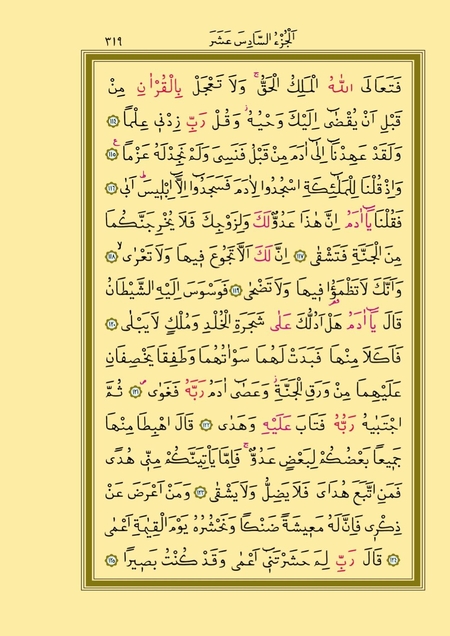 اَلْجُزْءُ السَّادِسَ عَشَرَ ٣١٩
فَتَعَالَى اللّٰهُ الْمَلِكُ الْحَقُّۚ وَلَا تَعْجَلْ بِالْقُرْاٰنِ مِنْ
قَبْلِ اَنْ يُقْضٰٓى اِلَيْكَ وَحْيُهُۘ وَقُلْ رَبِّ زِدْنٖى عِلْمًا ﴿١١٤﴾
وَلَقَدْ عَهِدْنَٓا اِلٰٓى اٰدَمَ مِنْ قَبْلُ فَنَسِىَ وَلَمْ نَجِدْ لَهُ عَزْمًا ﴿١١٥﴾
وَاِذْ قُلْنَا لِلْمَلٰٓئِكَةِ اسْجُدُوا لِاٰدَمَ فَسَجَدُٓوا اِلَّٓا اِبْلٖيسَۜ اَبٰى ﴿١١٦﴾
فَقُلْنَا يَٓا اٰدَمُ اِنَّ هٰذَا عَدُوٌّ لَكَ وَلِزَوْجِكَ فَلَا يُخْرِجَنَّكُمَا
مِنَ الْجَنَّةِ فَتَشْقٰى ﴿١١٧﴾ اِنَّ لَكَ اَلَّا تَجُوعَ فٖيهَا وَلَا تَعْرٰىۙ ﴿١١٨﴾
وَاَنَّكَ لَا تَظْمَؤُ۬ا فٖيهَا وَلَا تَضْحٰى ﴿١١٩﴾ فَوَسْوَسَ اِلَيْهِ الشَّيْطَانُ
قَالَ يَٓا اٰدَمُ هَلْ اَدُلُّكَ عَلٰى شَجَرَةِ الْخُلْدِ وَمُلْكٍ لَا يَبْلٰى ﴿١٢٠﴾
فَاَكَلَا مِنْهَا فَبَدَتْ لَهُمَا سَوْاٰتُهُمَا وَطَفِقَا يَخْصِفَانِ
عَلَيْهِمَا مِنْ وَرَقِ الْجَنَّةِۘ وَعَصٰٓى اٰدَمُ رَبَّهُ فَغَوٰىۖ ﴿١٢١﴾ ثُمَّ
اجْتَبٰيهُ رَبُّهُ فَتَابَ عَلَيْهِ وَهَدٰى ﴿١٢٢﴾ قَالَ اهْبِطَا مِنْهَا
جَمٖيعًا بَعْضُكُمْ لِبَعْضٍ عَدُوٌّۚ فَاِمَّا يَاْتِيَنَّكُمْ مِنّٖى هُدًى
فَمَنِ اتَّبَعَ هُدَاىَ فَلَا يَضِلُّ وَلَا يَشْقٰى ﴿١٢٣﴾ وَمَنْ اَعْرَضَ عَنْ
ذِكْرٖى فَاِنَّ لَهُ مَعٖيشَةً ضَنْكًا وَنَحْشُرُهُ يَوْمَ الْقِيٰمَةِ اَعْمٰى
﴿١٢٤﴾ قَالَ رَبِّ لِمَ حَشَرْتَنٖٓى اَعْمٰى وَقَدْ كُنْتُ بَصٖيرًا ﴿١٢٥﴾